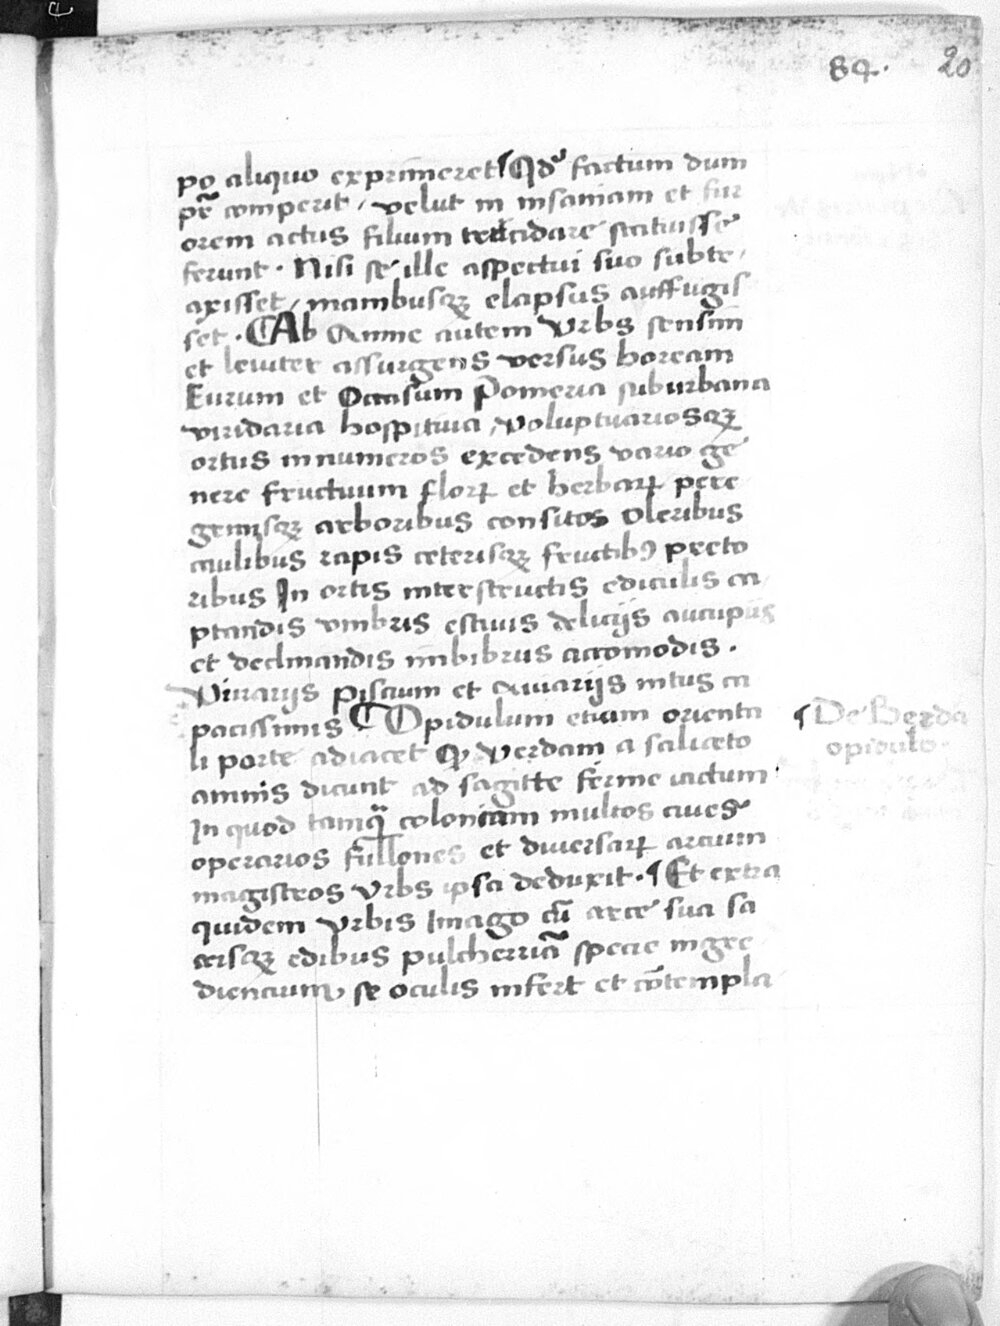 84. 20
po aliquo exprimeret ¶ Qd' factum dum
pr̄ comperit / velut in insaniam et fur
orem actus filium trucidare statuisse
ferunt . Nisi se ille aspectui suo subtr/
axisset / manibusqꝫ elapsus auffugis
set . ¶ Ab Amne autem Vrbs sensim
et leuiter assurgens versus boream
Eurum et Occasum Pomeria suburbana
viridaria hospitiuia / voluptuariosqꝫ
ortus innumeros excedens vario ge
nere fructuum florꝝ et herbarꝝ pere
grinisqꝫ arboribus consitos Oleribus
caulibus rapis ceterisqꝫ fructibꝰ precto
ribus In ortis interstructis ediculis ca
ptandis vmbris estiuis delicijs aucupijs
et declinandis imbibrus accomodis .
Viuarijs piscium et Auiarijs intus ca
pacissimis ¶ Opidulum etiam orienta
li porte adiacet Qꝫ Verdam a saliceto
amnis dicunt ad sagitte ferme iactum
In quod tamq̄ coloniam multos ciues
operarios fullones et diuersarꝝ arcium
magistros Vrbs ipsa deduxit . ¶ Et extra
quidem Vrbis Imago cū arce sua sa
crisqꝫ edibus pulcherrima specie ingre
diencium se oculis infert et cōtempla
¶ De Berda
opidulo.